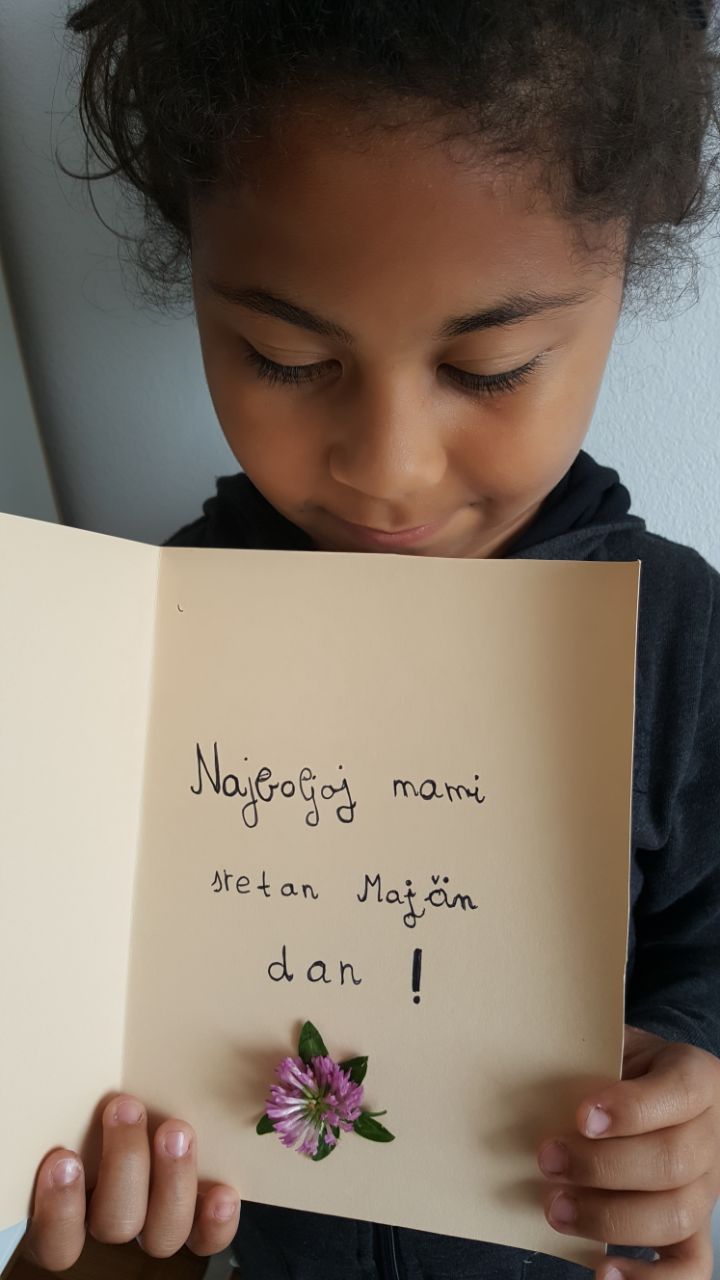 Najboljoj mami
sretan Majčin
dan !